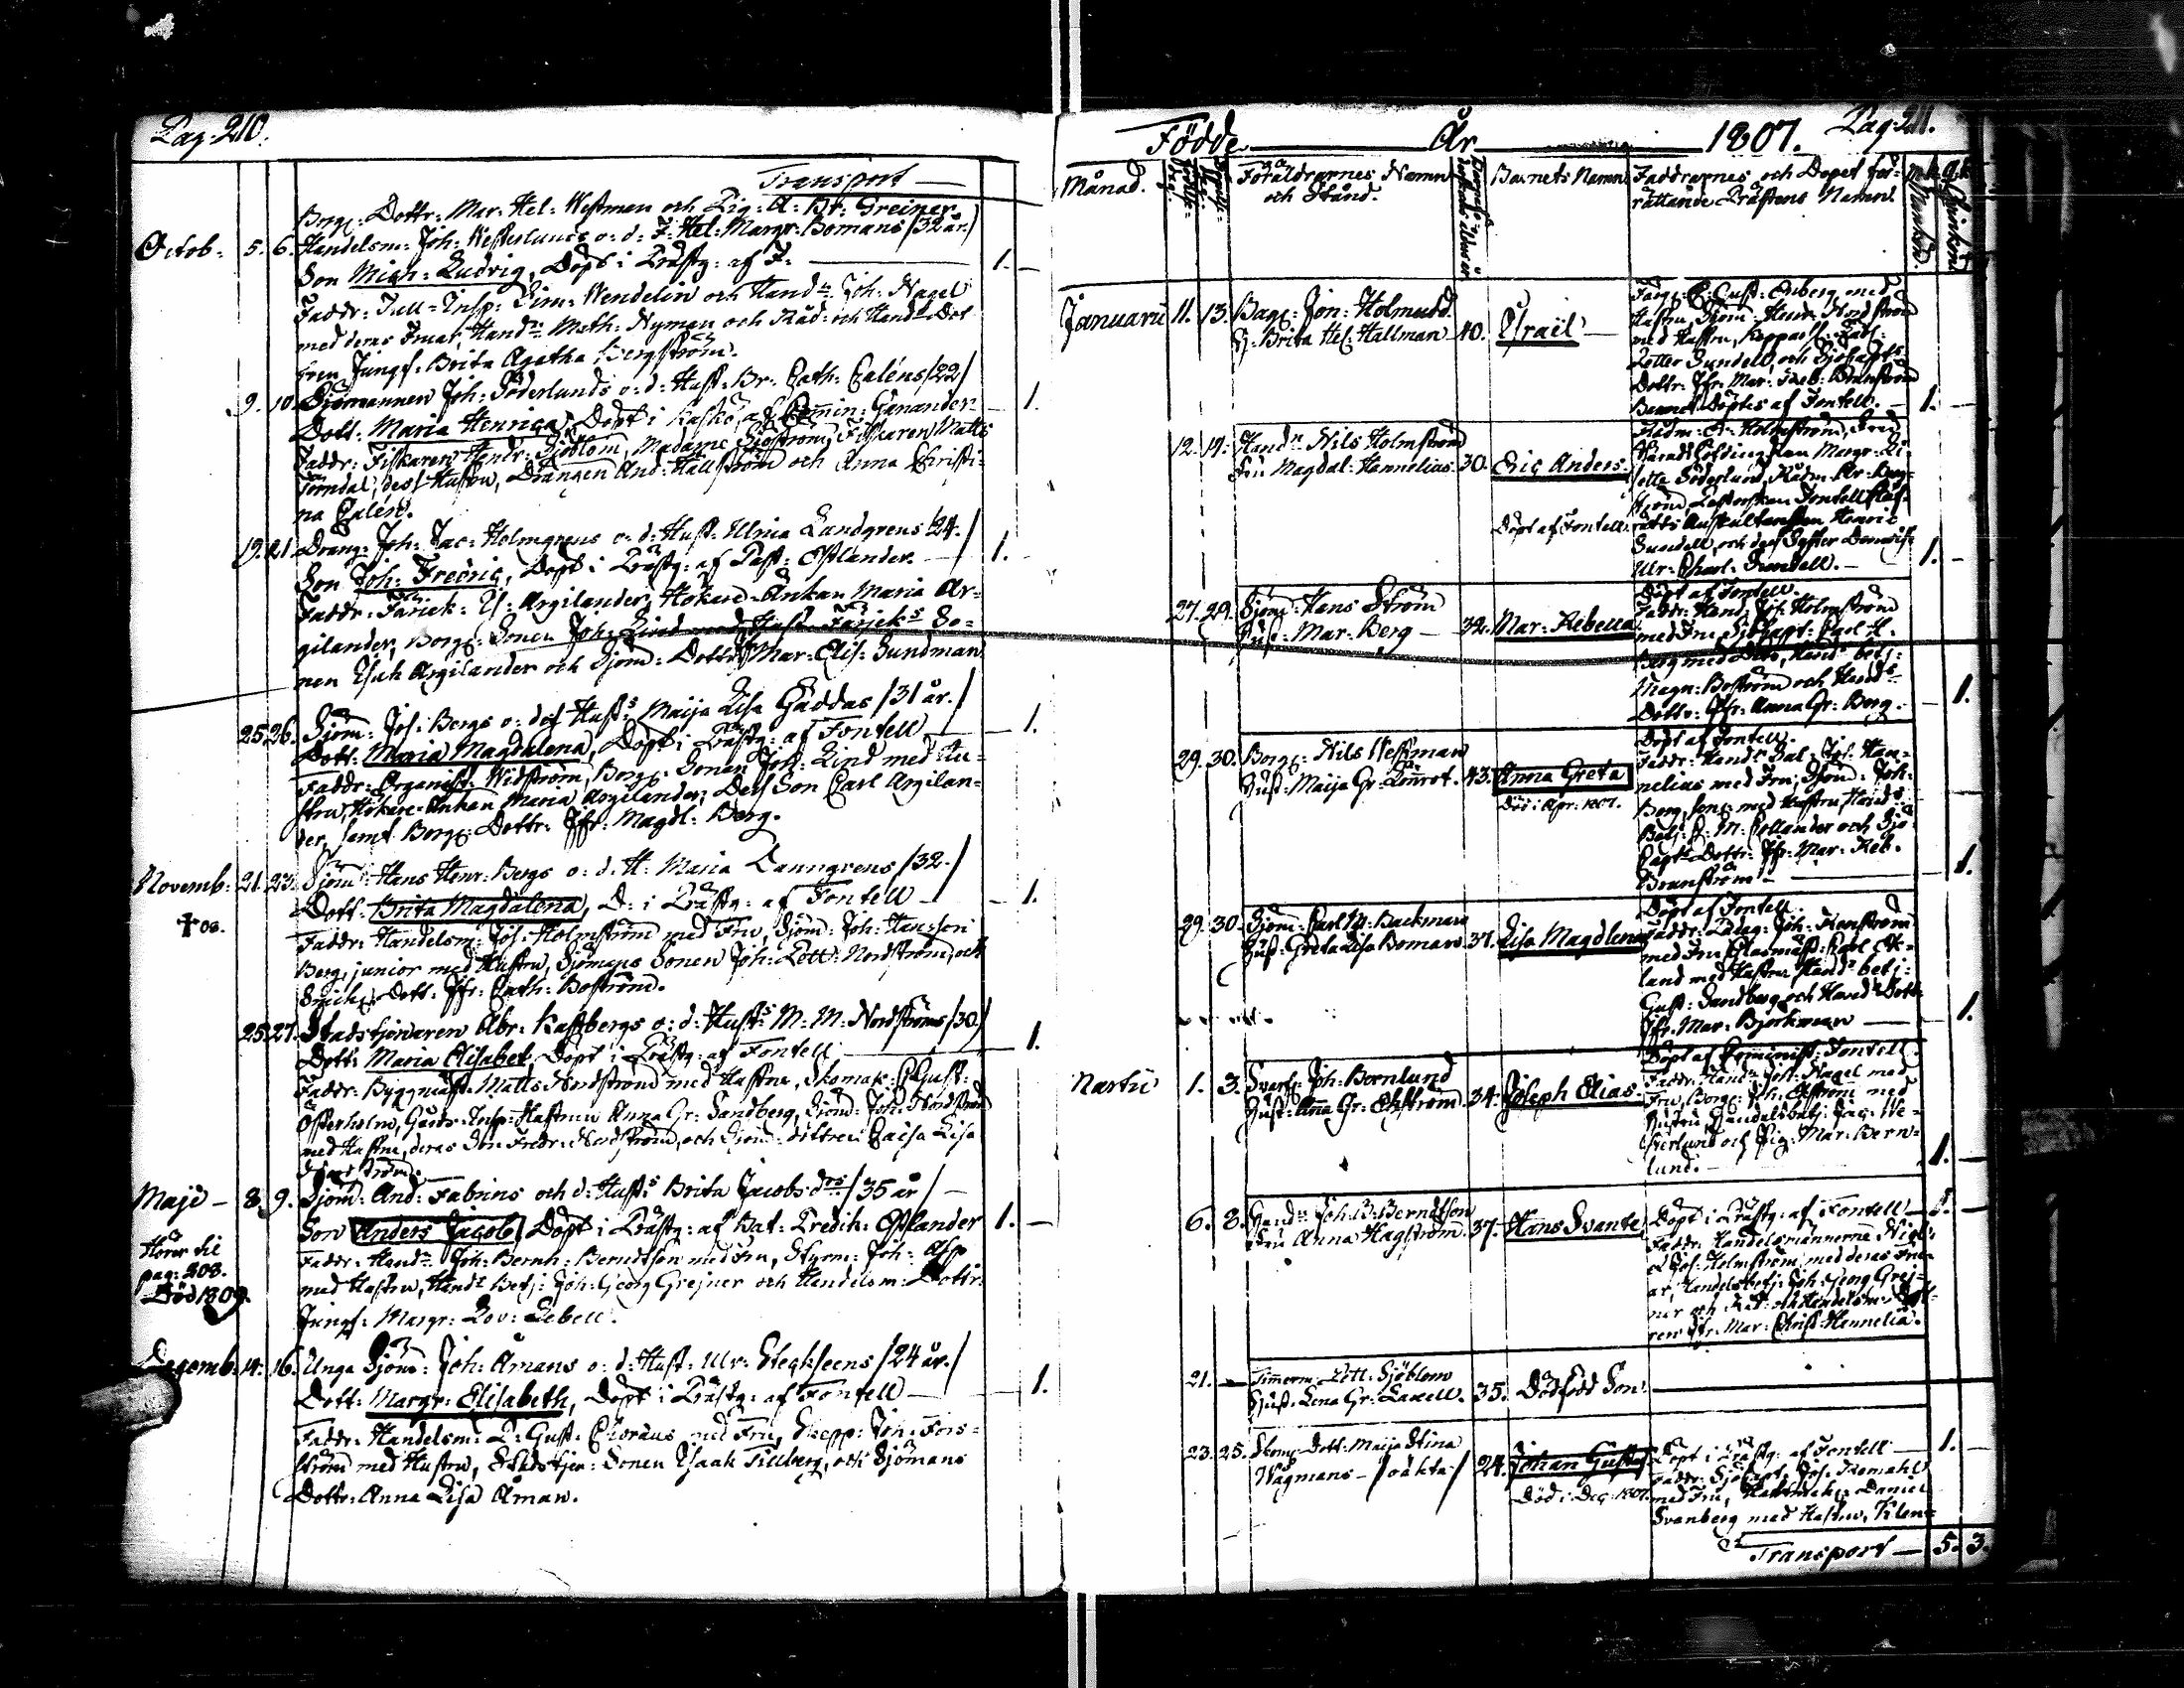 Pag. 210.
Transport —
Borg: Dottr: Mar: Hel: Westman och Pig: A: Br: Greiner
Octob: 5. 6. Handelsm: Joh: Westerlunds o: d: F: Hel: Margr: Bomans /32 år/
Son Mich: Ludvig, Döpt i Prästg: af F: — 1. —
Faddr: Tull-Insp: Sim: Wendelin och Hand: Joh: Nagel
med deras Fruar, Hand: Math: Nyman och Råd- och Hand: Dot
tren Jungf: Brita Agatha Bergström.
9. 10. Sjömannen Joh: Söderlunds o: d: Hust: Br: Cath: Caléns /22/ — 1.
Dott: Maria Henrica, Döpt i Kaskö af Comin: Ganander
Faddr: Fiskaren Hendr: Sjöblom, Madame Sjöström, Fiskaren Matts
Törndal, dess Hustru, Drängen And: Hällström och Anna Christi-
na Calén.
19. 21. Dräng: Joh: Jac: Holmgrens o: d: Hust: Ulrica Landgrens /24./
Son Joh: Fredric, Döpt i Prästg: af Past: Estlander. — 1.
Faddr: Färjek: Is: Argilander, Hökare-Ankan Maria Ar-
gilander, Borg: Sonen Joh: Lind med Hust: Färjek:s So-
nen Isak Argilander och Sjöm: Dottr: Mar: Elis: Sundman
25. 26. Sjöm: Jos: Bergs o: des Hust:s Maija Lisa Gäddas /31 år./
Dott: Maria Magdalena, Döpt i Prästg: af Fontell — 1.
Faddr: Organist: Widström, Borg: Sonen Joh: Lind med Hu-
stru, Hökare-Ankan Maria Argilander, Dess Son Carl Argilan-
der, samt Borg: Dottr: Jfr: Magdl: Berg.
Novemb: 21. 23. Sjöm: Hans Henr: Bergs o: d: H: Maria Danngrens /32./
Dott: Brita Magdalena, D: i Prästg: af Fontell — 1.
† 08.
Faddr: Handelsm: Jos: Holmström med Fru, Sjöm: Joh: Hansson
Berg, junior med Hustru, Sjömans Sonen Joh: Zett: Nordström, och
Dott: Jfr: Cath: Boström.
25. 27. Stadstjenaren Abr: Kassbergs o: d: Hust:s M: M: Nordströms /30/
Dott: Maria Elisabet, Döpt i Prästg: af Fontell — 1.
Faddr: Byggmäst: Matts Nordström med Hustru, Skomak: C: Gust:
Österholm, Hustrun Anna Gr: Sandberg, Sjöm: Joh: Nordström
med Hustru, deras Son Fredr: Nordström, och Sjöm: dottren Caisa Lisa
Maji — 8. 9. Sjöm: And: Fabrins och d: Hust:s Brita Jacobs drs /35 år/ —
Son Anders Jacob, Döpt i Prästg: af Bat: Predik: Estlander 1. —
Hörer til
pag: 208.
Död 1809.
Faddr: Hand: Joh: Bernh: Berndtson med Fru, Styrm: Joh: Asp
med Hustru, Hand: Betj: Joh: Georg Grejner och Handelsm: Dottr:
Jungf: Margr: Lov: Lebell.
Decemb: 14. 16. Unga Sjöm: Joh: Åmans o: d: Hust: Ulr: Stegkseens /24 år./
Dott: Margr: Elisabeth, Döpt i Prästg: af Fontell — 1.
Faddr: Handelsm: P: Gust: Choræus med Fru, Skepp: Joh: Fors-
ström med Hustru, Stadstjen: Sonen Isaak Tillberg, och Sjömans
Dottr: Anna Lisa Åman.
Födde År 1807. Pag. 211.
Månad. Föräldrarnes Namn och Stånd. Barnets Namn Faddrarnes och Dopet för-
rättande Prästens Namn.
Januarii 11. 13. Bag: Jon: Holmlund.
H: Brita Hel: Hallman 40. Israël —
Färg: C: Gust: Enberg med
Hustru, Sjöm: Henr: Nordström
med Hustru,
Zetter Sundell, och Sjökapt:s
Dottr: Jfr: Mar: Reb: Branström
Barnet Döptes af Fontell. — 1. —
12. 14. Hand: Nils Holmström
Fru Magdal: Hannelias 30. Eric Anders.
Döpt af Fontell.
Rådm: Holmström, Fru
Häradshöfdingskan Margr: Li-
sette Söderlund, Rådm: Ar: Berg-
ström, Fontell Hof-
rätts Auskultanten Henric
Sundell, och dess Syster Demois:
Ulr: Charl: Sundell. — 1. —
27. 29. Sjöm: Hans Ström
Hust: Mar: Berg — 32. Mar: Rebecca
Döpt af Fontell.
Faddr: Hand: Jos: Holmström
med Fru, Sjökapt: Carl H:
Berg med Dito, Hand: betj:
Magn: Boström och Hand:s
Dottr: Jfr: Anna Gr: Berg. — 1.
29. 30. Borg: Nils Westman
Hust: Maija Gr: Lönnrot. 43. Anna Greta
Död i Apr: 1807.
Döpt af Fontell.
Faddr: Hand: Jos: Han-
nelius med Fru, Sjöm: Joh:
Berg, sen: med Hustru, Hand:s
Betj: P: M: Pollander och Sjö
Capt: Dottr: Jfr: Mar: Reb:
Branström — 1.
29. 30. Sjöm: Carl Backman
Hust: Greta Lisa Boman 37. Lisa Magdlena
Döpt af Fontell.
Faddr: Joh: Ranström
med Fru, Glasmäst: Carl Ek-
land med Hustru, Hand: betj:
Gust: Sandberg och Hand: Dott:
Jfr: Mar: Björkman — 1.
Martii 1. 3. Svarf: Joh: Bernlund
Hust: Anna Gr: Ekström 34. Joseph Elias.
Döpt af Comminist: Fontell.
Faddr: Hand: Joh: Nagel med
Fru, Borg: Joh: Ekström med
Hustru, Handelsbetj: Jac: We-
sterlund och Pig: Mar: Bern-
lund. — 1. —
6. 8. Hand: Joh: B: Berndtson
Fru Anna Hagström 37. Hans Svante
Döpt i Prästg: af Fontell — 1. —
Faddr: Handelsmännerne
Jos: Holmström med deras Fru-
ar, Handelsbetj: Joh: Georg Grej-
ner och Råd- och Handelsm: Dott-
ren Jfr: Mar: Christ: Hannelia.
21. — Timerm: Zett: Sjöblom
Hust: Lena Gr: Laxell. 35. Dödfödd Son.
23. 25. Skom: Dott: Maija Stina
Wågmans — /oäkta/ 24. Johan Gustaf
Död i Dec: 1807.
Döpt i Prästg: af Fontell — 1. —
Faddr: Sjökapt: Jos: Romahl
med Fru, Daniel
Svanberg med Hustru, Klen-
Transport — 5. 3.